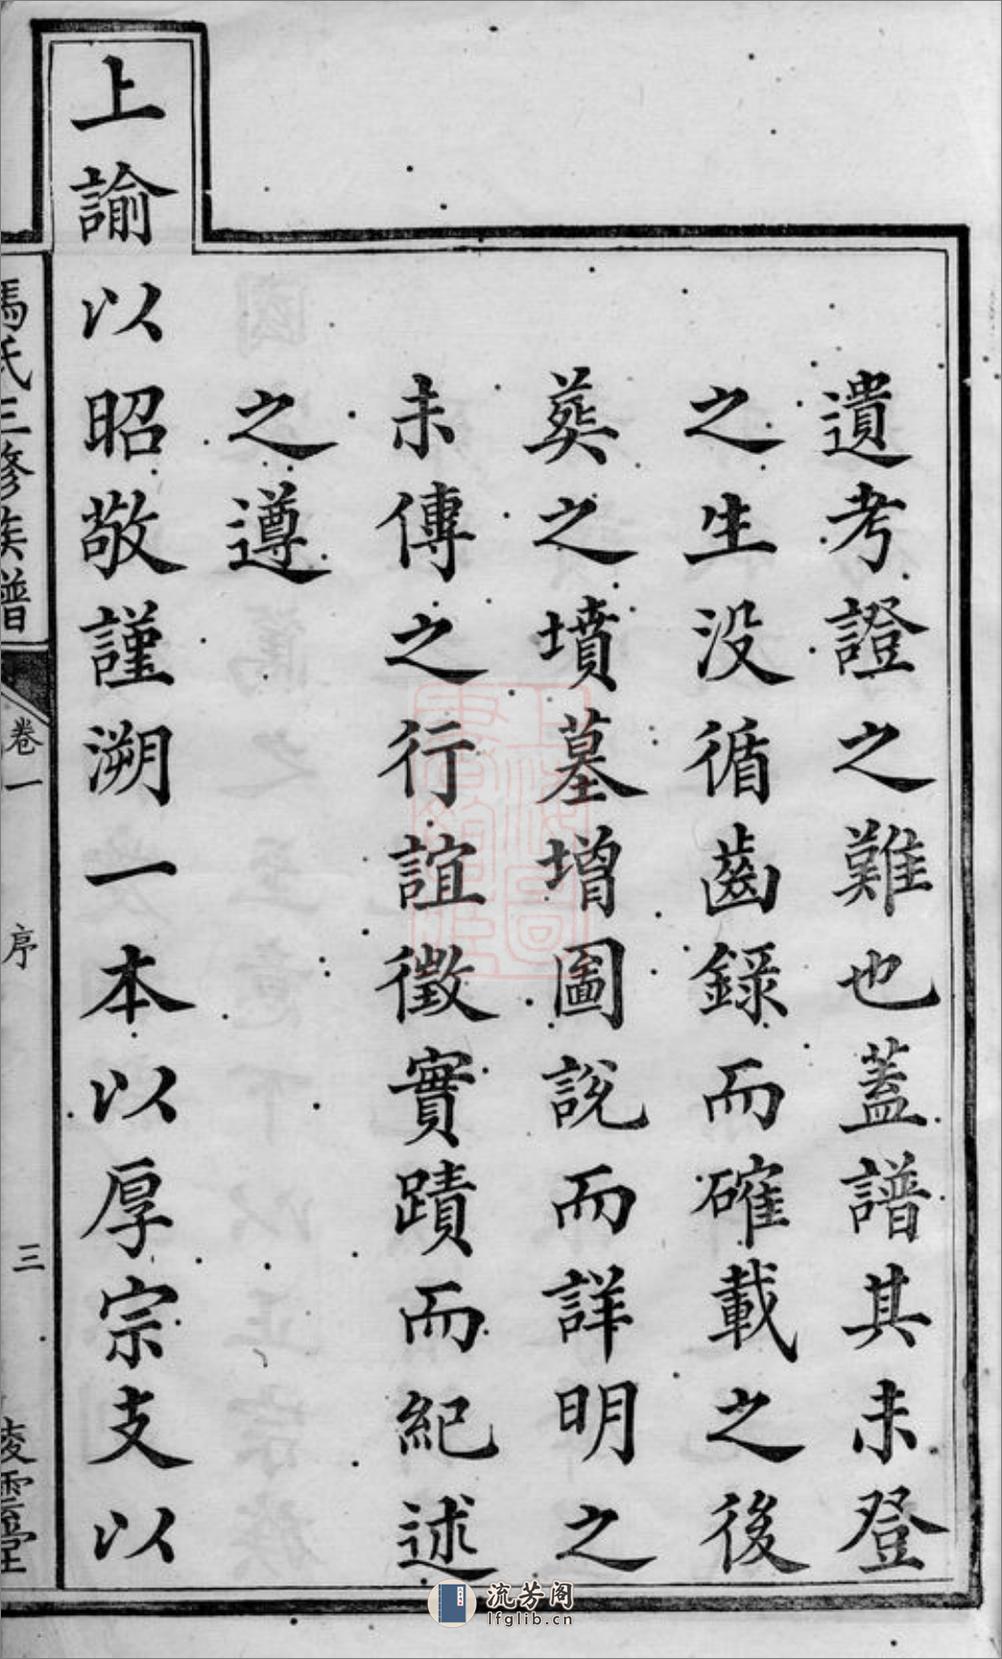 遺考證之難也蓋譜其未登
之生没循齒錄而確載之後
葬之墳墓增圖說而詳明之
未傳之行誼徵實蹟而紀述
之遵
上諭以昭敬謹溯一本以厚宗支以
馮氏三修族譜
卷一
序
三
陵雲堂
流芳阁
lfglib.cn